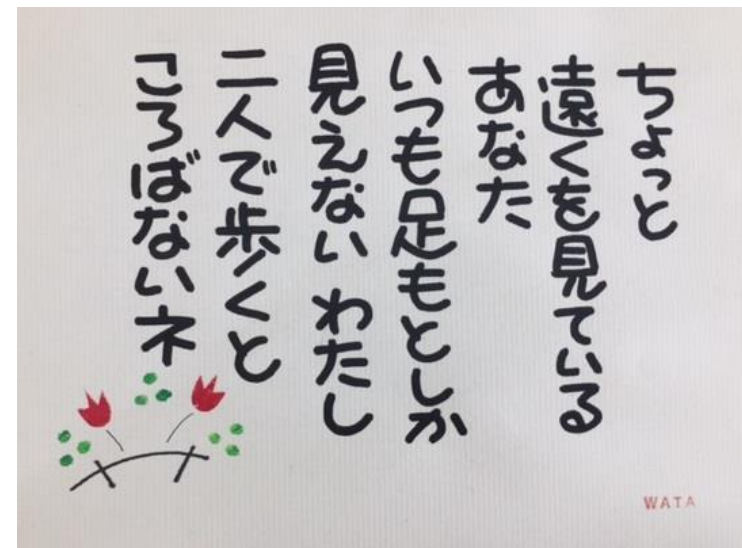 ちょっと
遠くを見ている
あなた
いつも足もとしか
見えない わたし
二人で歩くと
ころばないネ
WATA